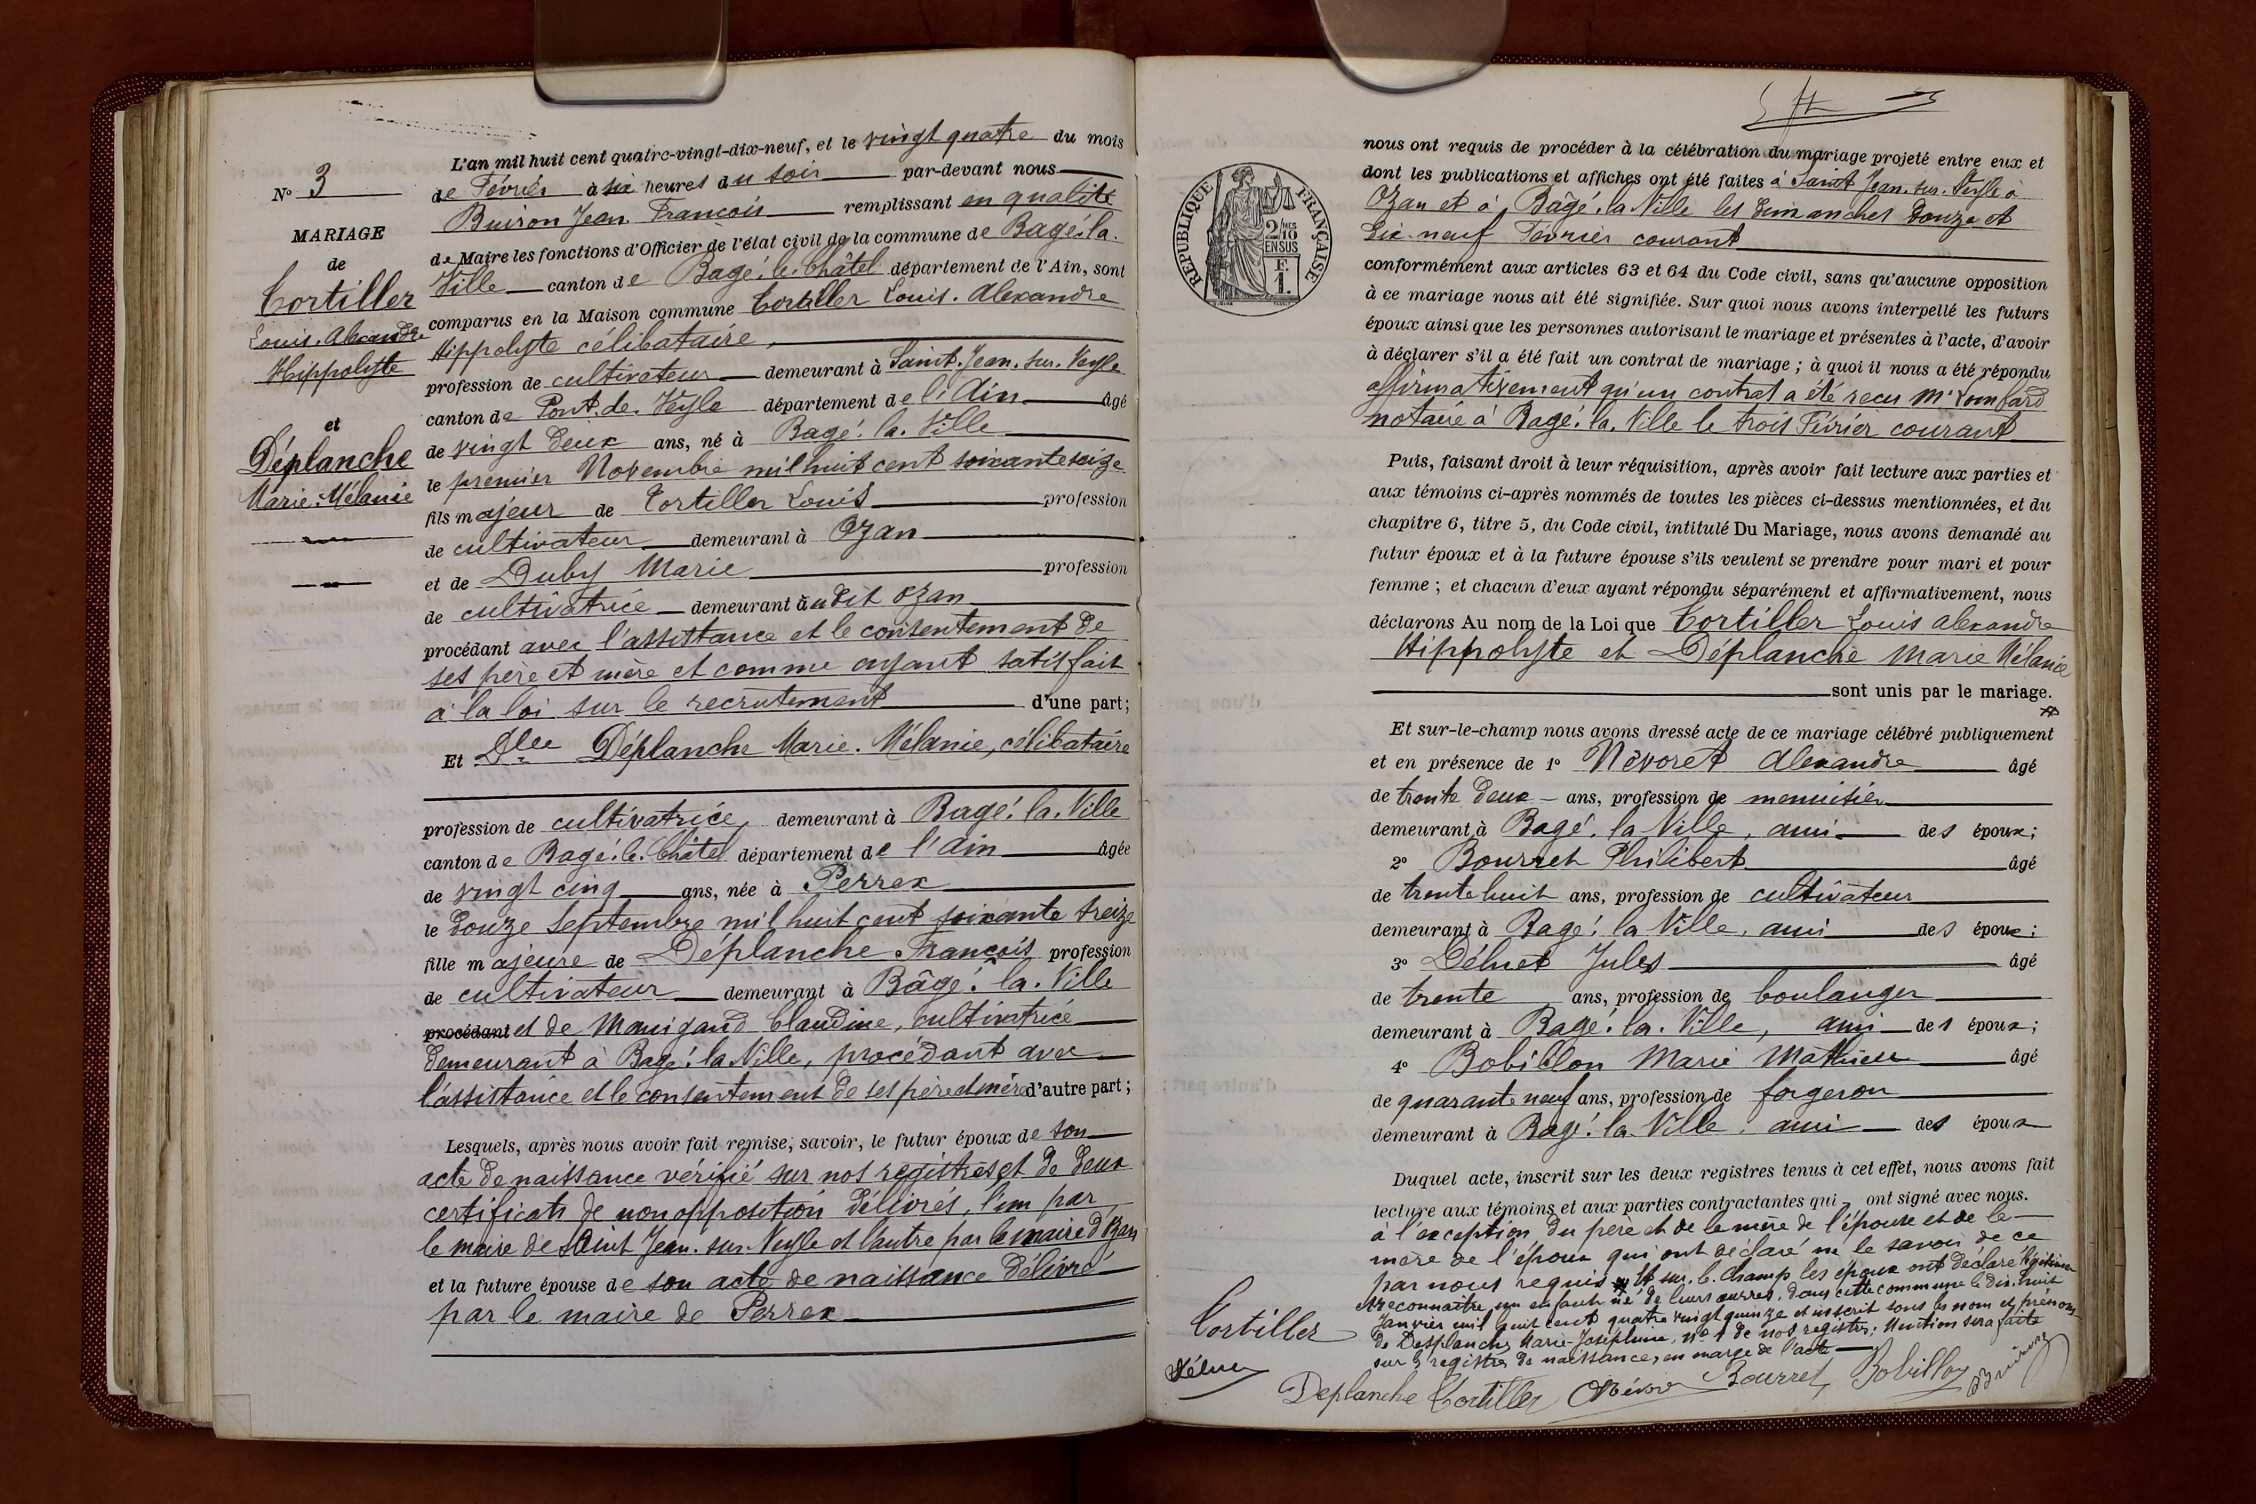 N° 3
MARIAGE
de
Tortiller
Louis. Alexandre
Hippolyte
et
Déplanche
Marie. Mélanie
L'an mil huit cent quatre-vingt-dix-neuf, et le vingt quatre du mois
de Février à six heures du soir par-devant nous
Buiron Jean François remplissant en qualité
de Maire les fonctions d'Officier de l'état civil de la commune de Bagé. la.
Ville canton de Bagé. le. Châtel département de l'Ain, sont
comparus en la Maison commune Tortiller Louis. Alexandre
Hippolyte célibataire,
profession de cultivateur demeurant à Saint. Jean. sur. Veyle
canton de Pont. de. Veyle département de l'Ain âgé
de vingt deux ans, né à Bagé. la. Ville
le premier Novembre mil huit cent soixante seize
fils majeur de Tortiller Louis profession
de cultivateur demeurant à Ozan
et de Duby Marie profession
de cultivatrice demeurant audit Ozan
procédant avec l'assistance et le consentement de
ses père et mère et comme ayant satisfait
à la loi sur le recrutement d'une part;
Et Dlle Déplanche Marie. Mélanie, célibataire
profession de cultivatrice, demeurant à Bagé. la. Ville
canton de Bagé. le. Châtel département de l'Ain âgée
de vingt cinq ans, née à Perrex
le douze Septembre mil huit cent soixante treize
fille majeure de Déplanche François profession
de cultivateur demeurant à Bâgé. la. Ville
procédant et de Manigand Claudine, cultivatrice
demeurant à Bagé. la Ville, procédant avec
l'assistance et le consentement de ses père et mère d'autre part;
Lesquels, après nous avoir fait remise, savoir, le futur époux de son
acte de naissance vérifié sur nos registres et de deux
certificats de non opposition délivrés, l'un par
le maire de Saint Jean. sur. Veyle et l'autre par le maire d'Ozan
et la future épouse de son acte de naissance délivré
par le maire de Perrex
RÉPUBLIQUE FRANÇAISE
2/10 EN SUS
F. 1.
nous ont requis de procéder à la célébration du mariage projeté entre eux et
dont les publications et affiches ont été faites à Saint Jean. sur. Veyle à
Ozan et à Bâgé. la Ville les dimanches Douze et
dix-neuf Février courant
conformément aux articles 63 et 64 du Code civil, sans qu'aucune opposition
à ce mariage nous ait été signifiée. Sur quoi nous avons interpellé les futurs
époux ainsi que les personnes autorisant le mariage et présentes à l'acte, d'avoir
à déclarer s'il a été fait un contrat de mariage; à quoi il nous a été répondu
affirmativement qu'un contrat a été reçu Mr Lombard
notaire à Bagé. la. Ville le trois Février courant
Puis, faisant droit à leur réquisition, après avoir fait lecture aux parties et
aux témoins ci-après nommés de toutes les pièces ci-dessus mentionnées, et du
chapitre 6, titre 5, du Code civil, intitulé Du Mariage, nous avons demandé au
futur époux et à la future épouse s'ils veulent se prendre pour mari et pour
femme; et chacun d'eux ayant répondu séparément et affirmativement, nous
déclarons Au nom de la Loi que Tortiller Louis Alexandre
Hippolyte et Déplanche Marie Mélanie
sont unis par le mariage.
Et sur-le-champ nous avons dressé acte de ce mariage célébré publiquement
et en présence de 1° Névoret Alexandre âgé
de trente deux ans, profession de menuisier
demeurant à Bagé. la Ville, ami des époux;
2° Bourret Philibert âgé
de trente huit ans, profession de cultivateur
demeurant à Bagé. la Ville, ami des époux;
3° Déluet Jules âgé
de trente ans, profession de boulanger
demeurant à Bagé. la. Ville, ami des époux;
4° Bobillon Marie Mathieu âgé
de quarante neuf ans, profession de forgeron
demeurant à Bagé. la Ville, ami des époux
Duquel acte, inscrit sur les deux registres tenus à cet effet, nous avons fait
lecture aux témoins et aux parties contractantes qui ont signé avec nous.
à l'exception du père et de la mère de l'épouse et de la
mère de l'époux qui ont déclaré ne le savoir de ce
par nous requis Et sur. le. champ les époux ont déclaré légitimer
et reconnaître un enfant né de leurs œuvres, dans cette commune le dix-huit
Janvier mil huit cent quatre vingt quinze et inscrit sous les nom et prénoms
de Desplanche Marie-Joséphine, n° 1 de nos registres; Mention sera faite
sur le registre de naissance, en marge de l'acte
Tortiller
Déluet
Deplanche Tortiller Névoret Bourret Bobillon Buiron